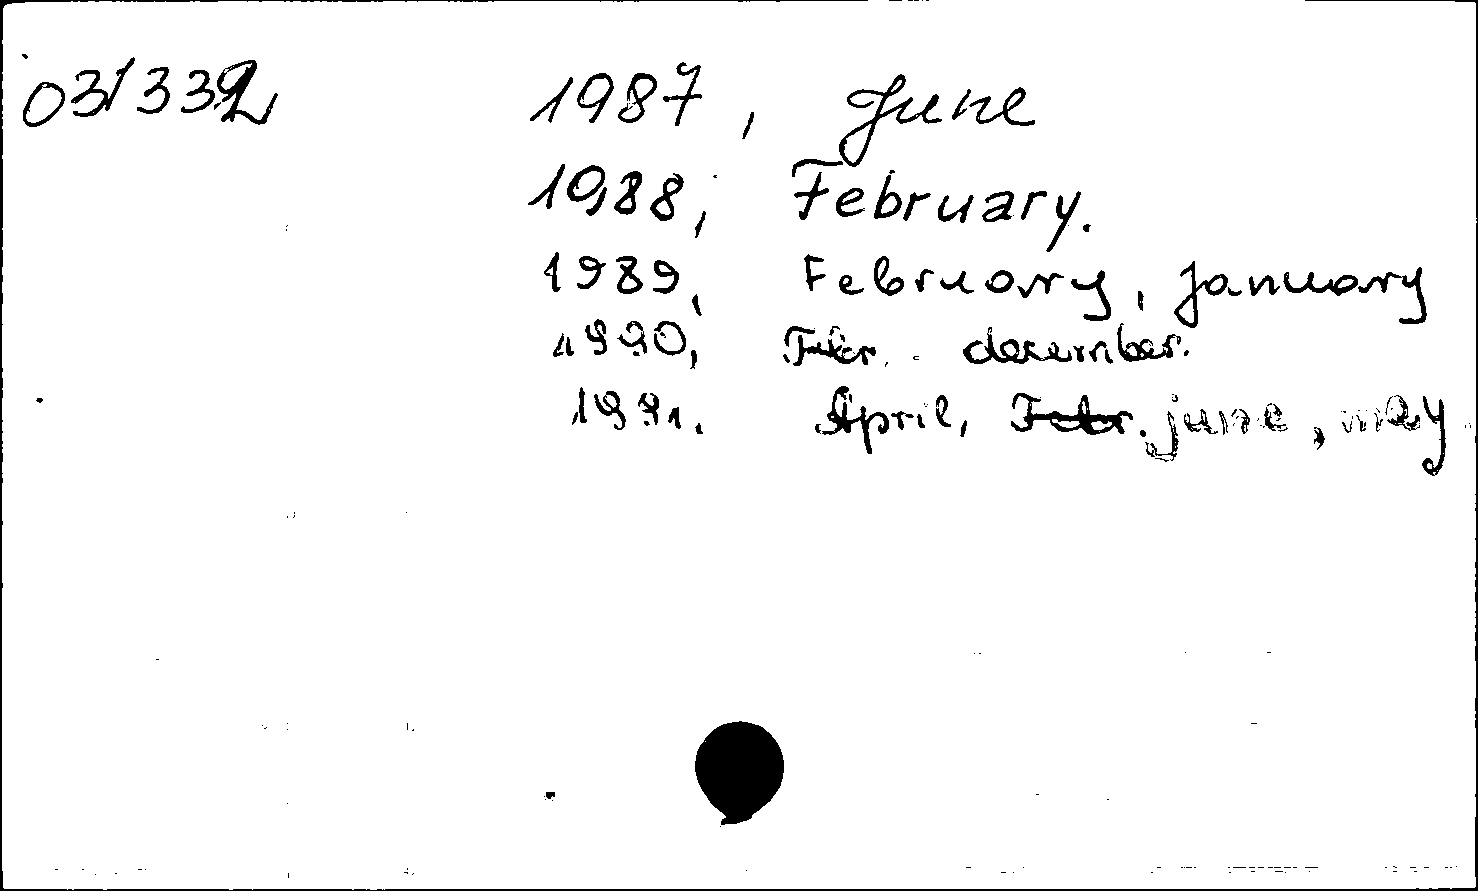 03/332 1987, June
1988, February.
1989, February, january
1990, Febr. desember.
1991. April, Febr. june, may